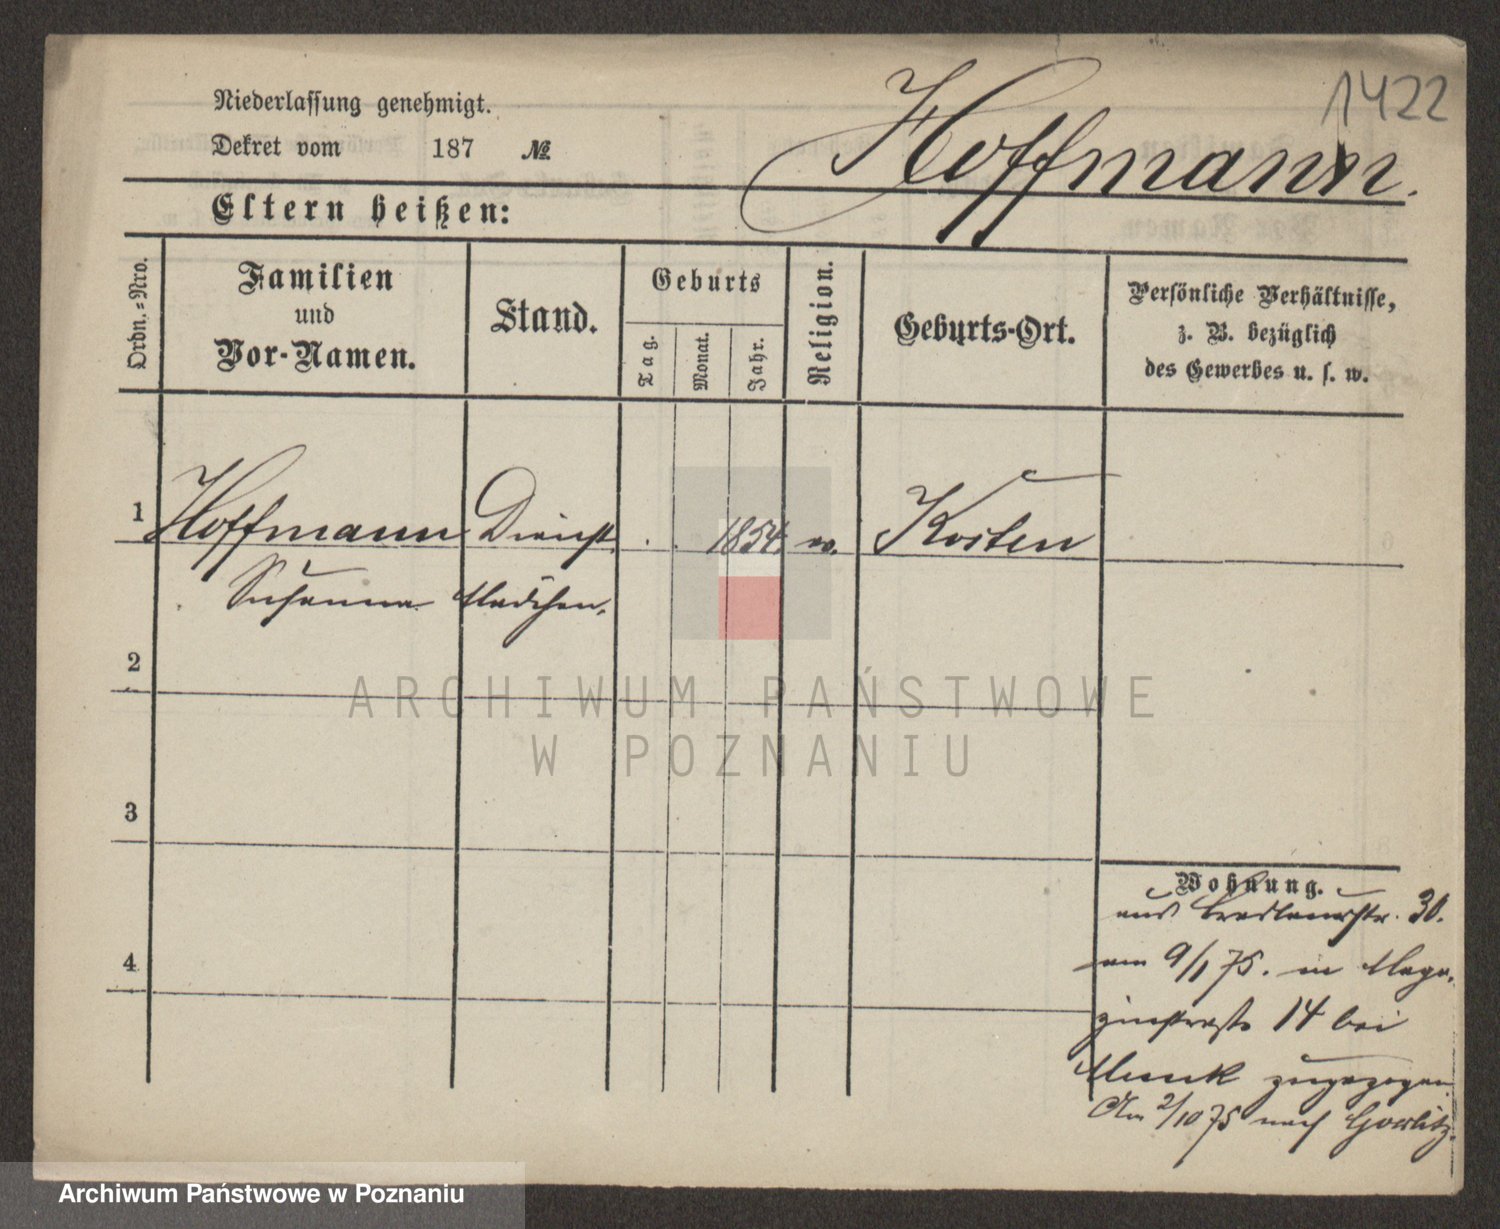 1422
Hoffmann.
Niederlassung genehmigt.
Dekret vom 187 №
Eltern heißen:
Ordn.=Nro.
Familien
und
Vor-Namen.
Stand.
Geburts
Tag.
Monat.
Jahr.
Religion.
Geburts-Ort.
Persönliche Verhältnisse,
z. B. bezüglich
des Gewerbes u. s. w.
1 Hoffmann Dienst . . 1854. Kosten
Susanna Mädchen.
2
ARCHIWUM PAŃSTWOWE
W POZNANIU
3
4
Wohnung.
aus Breslauerstr. 30.
am 9/1 75. in Maga-
zinstraße 14 bei
Munk zugezogen
Am 2/10 75 nach Goerlitz.
Archiwum Państwowe w Poznaniu